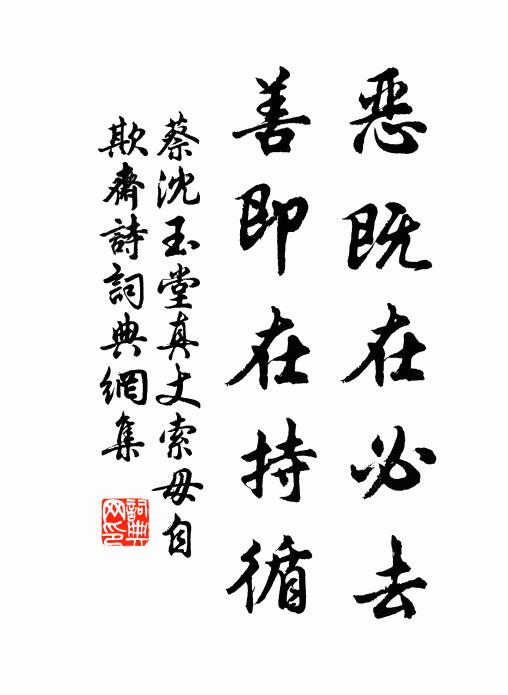 恶既在必去
善即在持循
蔡沈玉堂真丈索毋自
欺斋詩詞典網集
詞典
网印